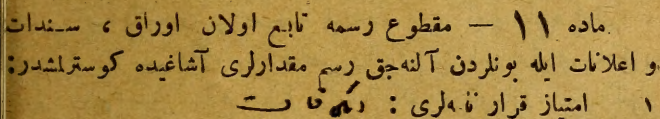 ماده ١١ — مقطوع رسمه تابع اولان اوراق ، سندات
و اعلانات ايله بونلردن آلنه‌جق رسم مقدارلری آشاغيده كوسترلمشدر:
١ امتياز قرار نامه‌لری :